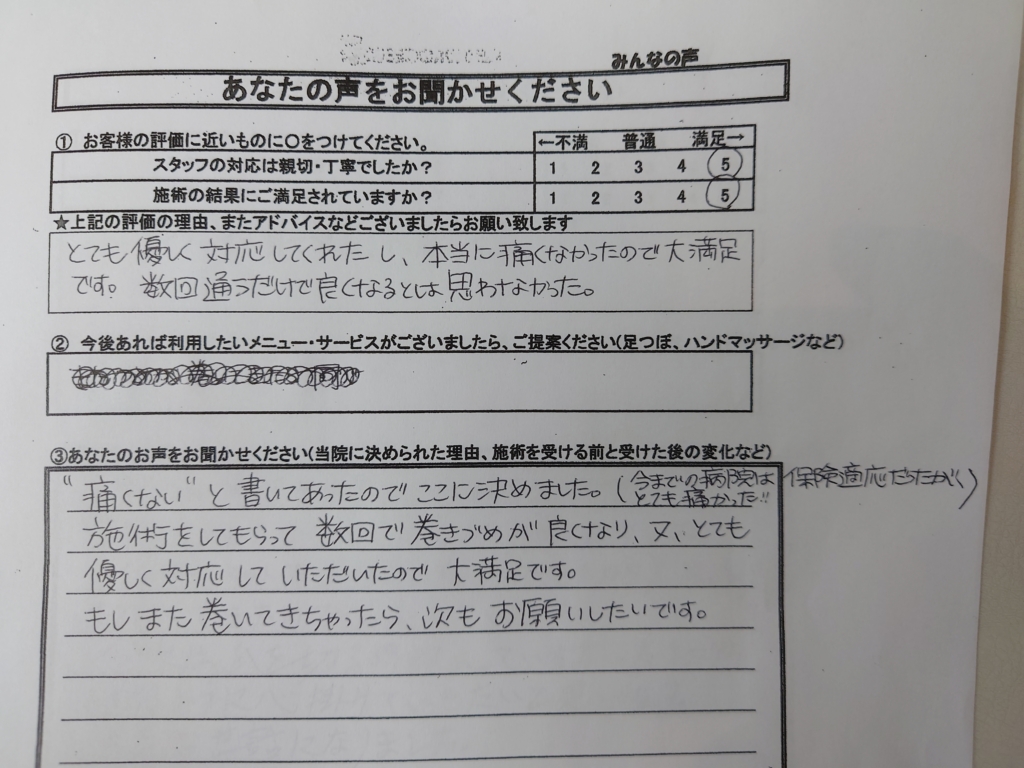 みんなの声
あなたの声をお聞かせください
① お客様の評価に近いものに○をつけてください。
←不満 普通 満足→
スタッフの対応は親切・丁寧でしたか？ 1 2 3 4 5
施術の結果にご満足されていますか？ 1 2 3 4 5
☆上記の評価の理由、またアドバイスなどございましたらお願い致します
とても優しく対応してくれたし、本当に痛くなかったので大満足
です。数回通うだけで良くなるとは思わなかった。
② 今後あれば利用したいメニュー・サービスがございましたら、ご提案ください(足つぼ、ハンドマッサージなど)
③あなたのお声をお聞かせください(当院に決められた理由、施術を受ける前と受けた後の変化など)
"痛くない"と書いてあったのでここに決めました。(今までの病院は保険適応だったが、
とても痛かった!!)
施術をしてもらって数回で巻きづめが良くなり、又、とても
優しく対応していただいたので大満足です。
もしまた巻いてきちゃったら、次もお願いしたいです。